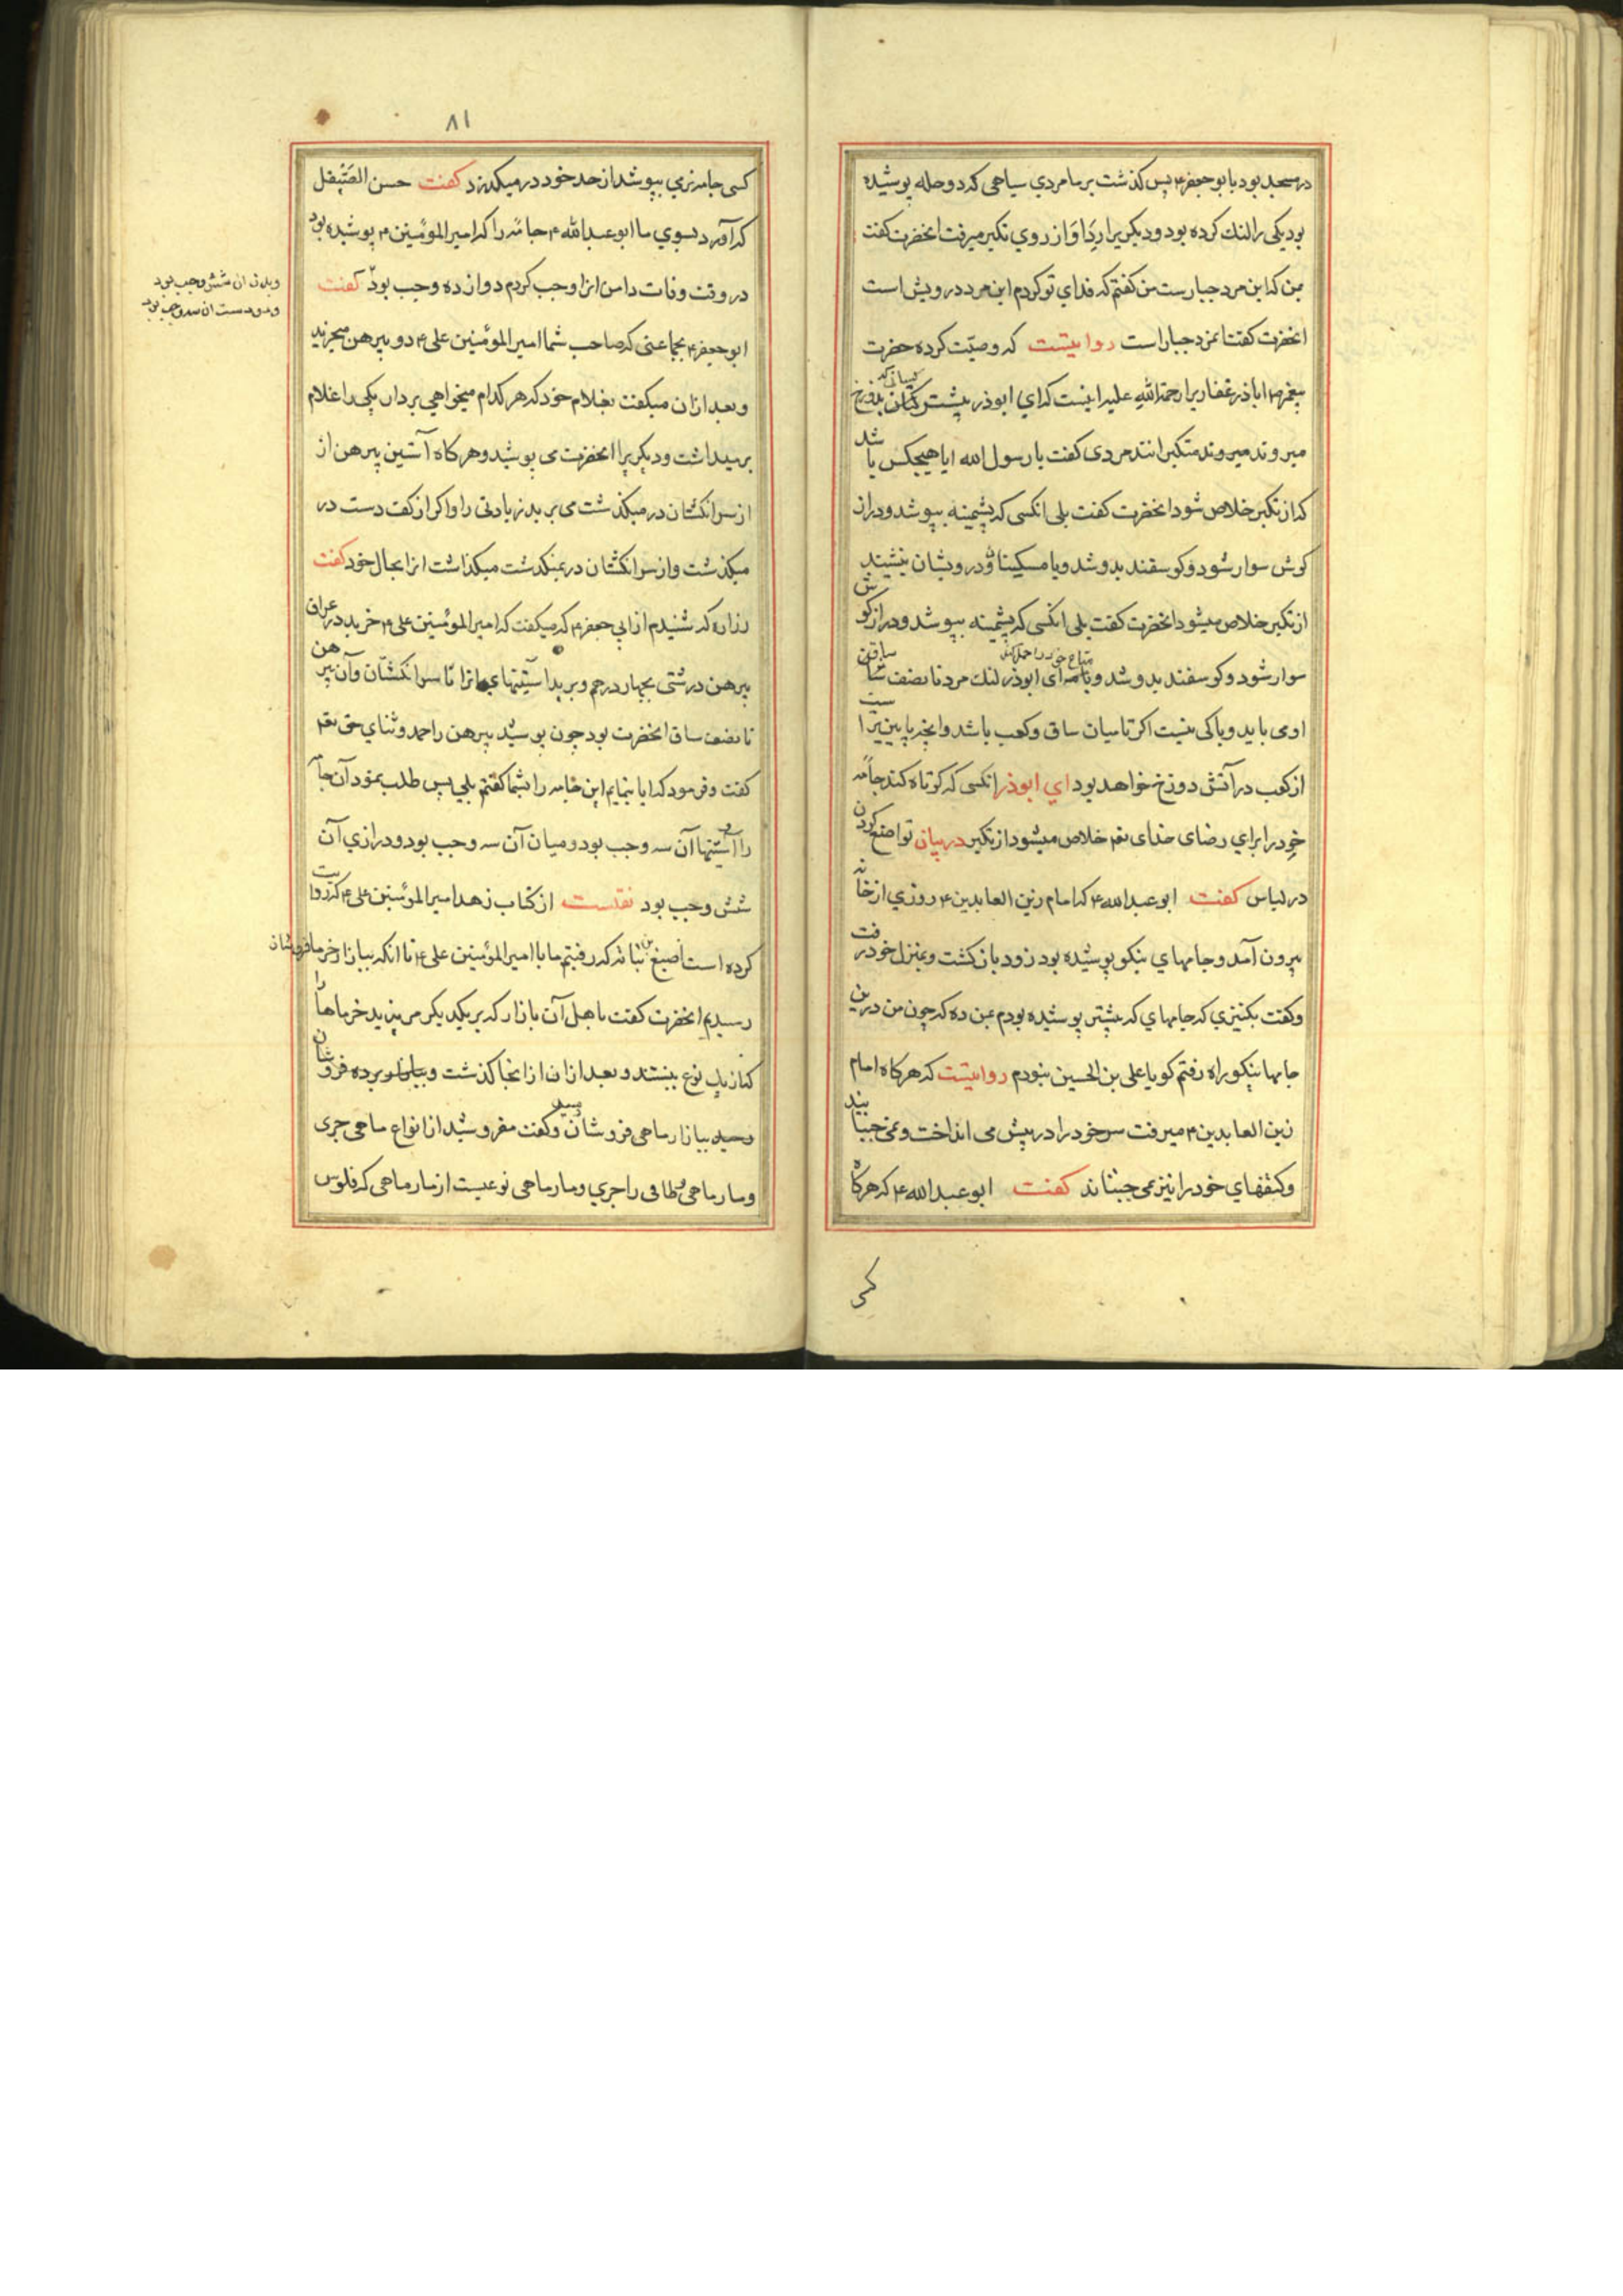 در مسجد بود با بو جعفر ۴ پس کذشت بر ما مردی سیاهی که دو حله پوشیده
بود یکی را لنك کرده بود و دیکریرا ردا و از روی تکبر میرفت انحضرت کفت
بمن که این مرد جبارست من کفتم که فدای تو کردم این مرد درویش است
انحضرت کفت اینمرد جبار است روایتست که وصیّت کرده حضرت
پیغمبر ص اباذر غفاریرا رحمة الله علیه اینست که ای ابوذر بیشتر کسانی که بدوزخ
میروند میروند متکبرانند مردی کفت یا رسول الله ایا هیچکس باشد
که از تکبر خلاص شود انحضرت کفت بلی انکسی که پشمینه بپوشد و دراز
کوش سوار شود و کوسفند بدوشد و با مسکینان و درویشان بنشیند
از تکبر خلاص میشود انحضرت کفت بلی انکسی که پشمینه بپوشد و دراز کوش
سوار شود و کوسفند بدوشد و متاع خود را حمل کند ای ابوذر لنك مرد تا نصف ساقین
اومی باید و باکی نیست اکر تا میان ساق و کعب باشد و انچه پایین تر است
از کعب در آتش دوزخ خواهد بود ای ابوذر انکسی که کوتاه کند جامه
خود را برای رضای خدای تعم خلاص میشود از تکبر در بیان تواضع کردن
در لباس کفت ابو عبد الله ۴ که امام زین العابدین ۴ روزی از خانه
بیرون آمد و جامهای نیکو پوشیده بود زود باز کشت و بمنزل خود رفت
و کفت بکنیزی که جامهای که پیشتر پوشیده بودم بمن ده که چون من در ین
جامها نیکو راه رفتم کویا علی بن الحسین نبودم روایتست که هر کاه امام
زین العابدین ۴ میرفت سر خود را در پیش می انداخت و نمی جنبانید
و کتفهای خود را نیز نمی جنباند کفت ابو عبد الله ۴ که هر کاه
کسی
۸۱
کسی جامه نرمی بپوشد از حد خود در میکذرد کفت حسن الصّیقل
که آورد بسوی ما ابو عبد الله ۴ جامه را که امیر المؤمنین ۴ پوشیده بود
در وقت وفات دامن انرا وجب کردم دوازده وجب بود کفت
وبدن ان شش وجب بود
و دو دست ان سه وجب بود
ابو جعفر ۴ بجماعتی که صاحب شما امیر المؤمنین علی ۴ دو پیرهن میخرید
و بعد از ان میکفت بغلام خود که هر کدام میخواهی بردار یکی را غلام
برمیداشت و دیکریرا انحضرت می پوشید و هر کاه آستین پیرهن از
از سر انکشتان در میکذشت می برید زیادتی را و اکر از کفت دست در
میکذشت و از سر انکشتان در نمیکذشت میکذاشت انرا بحال خود کفت
زراره که شنیدم از ابی جعفر ۴ که میکفت که امیر المؤمنین علی ۴ خرید در عراق
پیرهن درشتی بچهار درهم و برید آستینهای انرا تا سر انکشتان وآن پیرهن
تا نصف ساق انحضرت بود چون پوشید پیرهن را حمد و ثنای حق تعم
کفت و فرمود که ایا بنمایم این جامه را بشما کفتم بلی پس طلب نمود آن جامه
را و آستینها آن سه وجب بود و میان آن سه وجب بود و درازی آن
شش وجب بود نقلست از کتاب زهد امیر المؤمنین علی ۴ که روایت
کرده است اصبغ بن نباته که رفتیم ما با امیر المؤمنین علی ۴ تا انکه ببازار خرما فروشان
رسیدیم انحضرت کفت باهل آن بازار که بر یکدیکر مریزید خرماها را
که از یك نوع نیستند و بعد از ان از انجا کذشت و برده فروشان
رسید ببازار ماهی فروشان و کفت مفروشید از انواع ماهی جری
و مار ماهی و طافی را جری و مار ماهی نوعیست از مار ماهی که فلوس